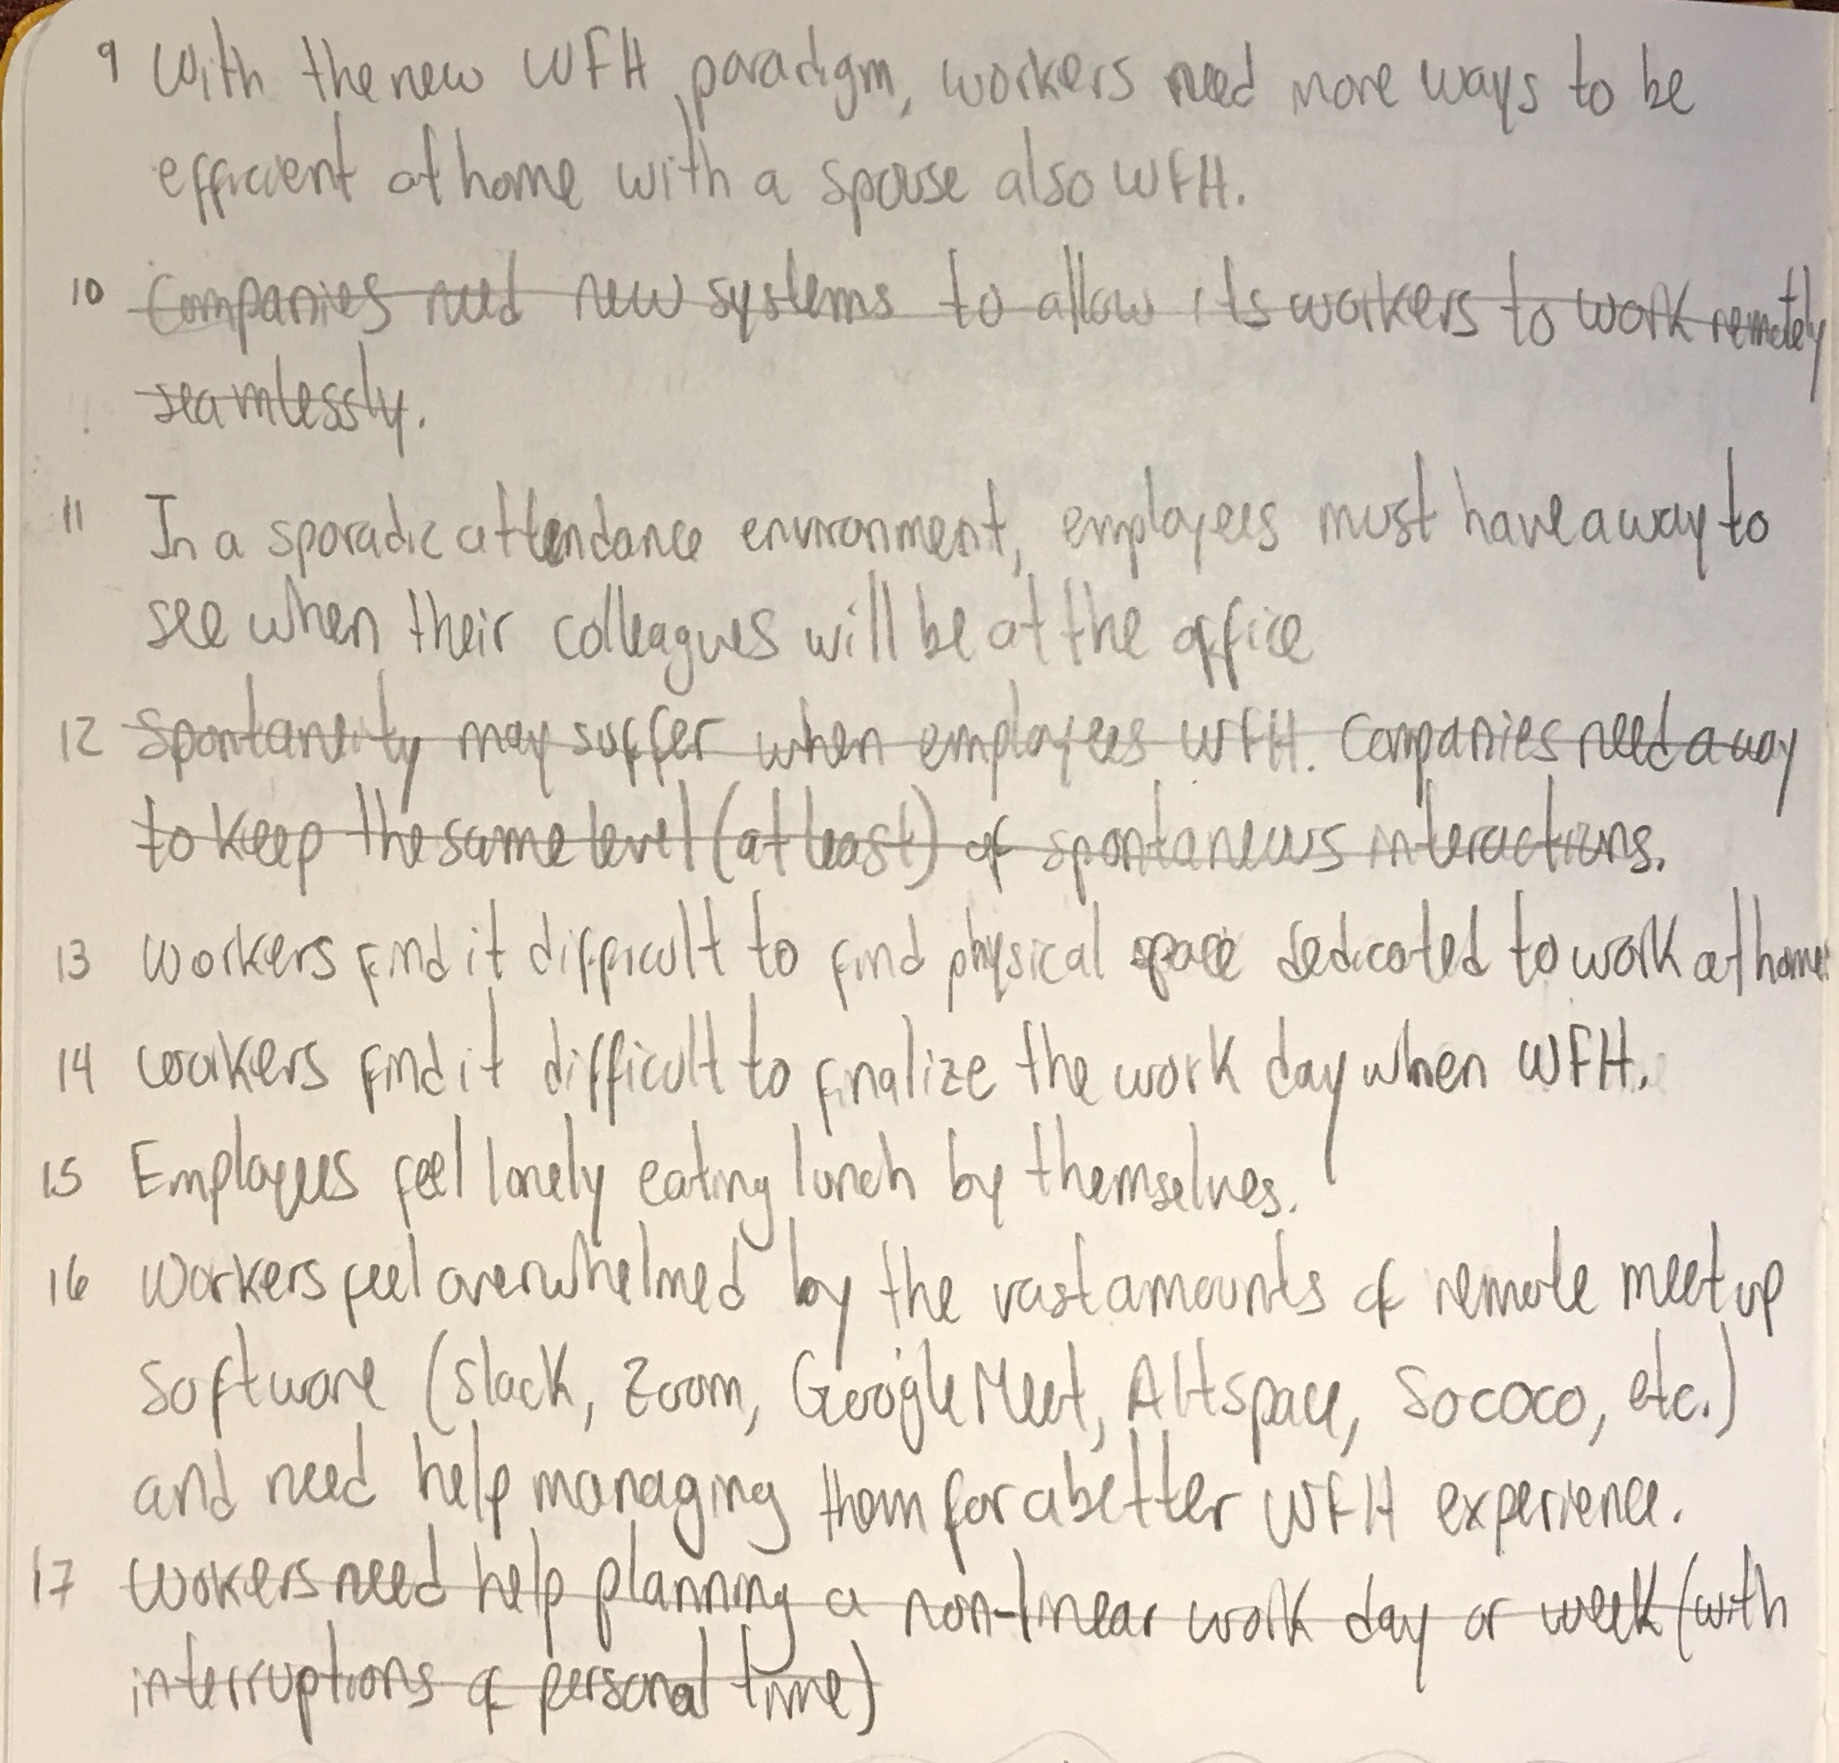 9 With the new WFH paradigm, workers need more ways to be
efficient at home with a spouse also WFH.
10 Companies need new systems to allow its workers to work remotely
seamlessly.
11 In a sporadic attendance environment, employees must have a way to
see when their colleagues will be at the office
12 Spontaneity may suffer when employees WFH. Companies need a way
to keep the same level (at least) of spontaneous interactions.
13 Workers find it difficult to find physical space dedicated to work at home.
14 Workers find it difficult to finalize the work day when WFH.
15 Employees feel lonely eating lunch by themselves.
16 Workers feel overwhelmed by the vast amounts of remote meet up
software (Slack, Zoom, Google Meet, AltSpace, Sococo, etc.)
and need help managing them for a better WFH experience.
17 Workers need help planning a non-linear work day or week (with
interruptions of personal time)